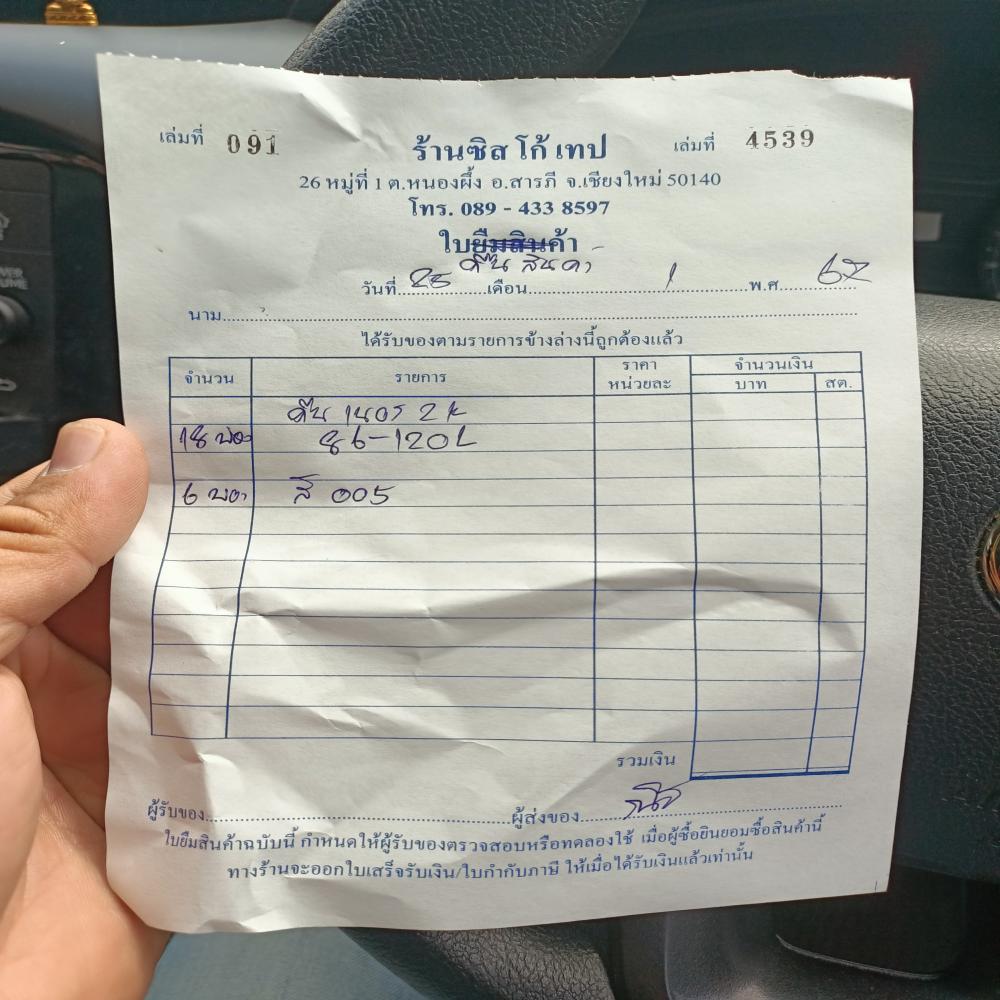 เล่มที่ 091 ร้านซิส โก้ เทป เล่มที่ 4539
26 หมู่ที่ 1 ต.หนองผึ้ง อ.สารภี จ.เชียงใหม่ 50140
โทร. 089 - 433 8597
ใบยืมสินค้า
คืน สินค้า
วันที่ 25 เดือน 1 พ.ศ 67
นาม
ได้รับของตามรายการข้างล่างนี้ถูกต้องแล้ว
จำนวน รายการ ราคา หน่วยละ จำนวนเงิน บาท สต.
คืน 2K
18 86-120L
6 สี 005
รวมเงิน
ผู้รับของ ผู้ส่งของ
ใบยืมสินค้าฉบับนี้ กำหนดให้ผู้รับของตรวจสอบหรือทดลองใช้ เมื่อผู้ซื้อยินยอมซื้อสินค้านี้
ทางร้านจะออกใบเสร็จรับเงิน/ใบกำกับภาษี ให้เมื่อได้รับเงินแล้วเท่านั้น